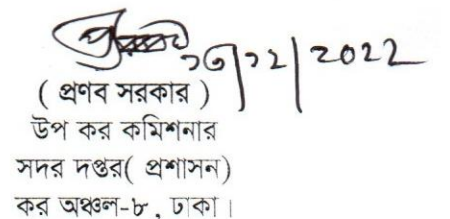 ১৩/১২/২০২২
( প্রণব সরকার )
উপ কর কমিশনার
সদর দপ্তর( প্রশাসন)
কর অঞ্চল-৮, ঢাকা।